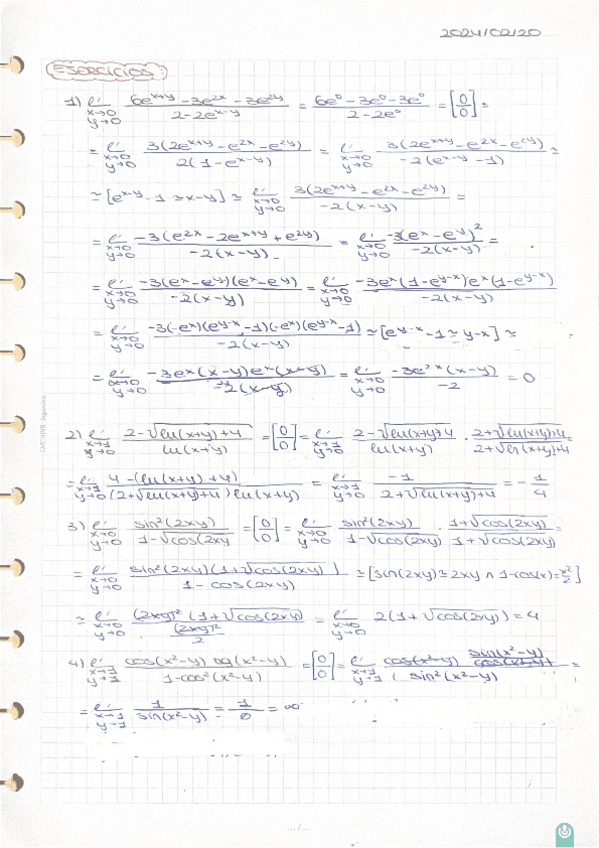 2024/02/20
EJERCICIOS:
1) lí x→0 y→0 (6e^(x+y) - 3e^(2x) - 3e^(2y))/(2 - 2e^(x-y)) = (6e^0 - 3e^0 - 3e^0)/(2 - 2e^0) = [0/0] =
= lí x→0 y→0 3(2e^(x+y) - e^(2x) - e^(2y))/(2(1 - e^(x-y))) = lí x→0 y→0 3(2e^(x+y) - e^(2x) - e^(2y))/(-2(e^(x-y) - 1)) ≃
≃ [e^(x-y) - 1 ≃ x-y] ≃ lí x→0 y→0 3(2e^(x+y) - e^(2x) - e^(2y))/(-2(x-y)) =
= lí x→0 y→0 -3(e^(2x) - 2e^(x+y) + e^(2y))/(-2(x-y)) = lí x→0 y→0 -3(e^x - e^y)^2/(-2(x-y)) =
= lí x→0 y→0 -3(e^x - e^y)(e^x - e^y)/(-2(x-y)) = lí x→0 y→0 -3e^x(1 - e^(y-x))e^x(1 - e^(y-x))/(-2(x-y))
= lí x→0 y→0 -3(-e^x)(e^(y-x) - 1)(-e^x)(e^(y-x) - 1)/(-2(x-y)) ≃ [e^(y-x) - 1 ≃ y-x] ≃
= lí x→0 y→0 -3e^x(x-y)e^x(x-y)/(-2(x-y)) = lí x→0 y→0 -3e^(2x)(x-y)/(-2) = 0
2) lí x→1 y→0 (2 - √(ln(x+y)+4))/(ln(x+y)) = [0/0] = lí x→1 y→0 (2 - √(ln(x+y)+4))/(ln(x+y)) · (2 + √(ln(x+y)+4))/(2 + √(ln(x+y)+4)) =
= lí x→1 y→0 (4 - (ln(x+y)+4))/((2 + √(ln(x+y)+4)) ln(x+y)) = lí x→1 y→0 -1/(2 + √(ln(x+y)+4)) = -1/4
3) lí x→0 y→0 sin²(2xy)/(1 - √cos(2xy)) = [0/0] = lí x→0 y→0 sin²(2xy)/(1 - √cos(2xy)) · (1 + √cos(2xy))/(1 + √cos(2xy)) =
= lí x→0 y→0 sin²(2xy)(1 + √cos(2xy))/(1 - cos(2xy)) ≃ [sin(2xy) ≃ 2xy ∧ 1 - cos(x) = x²/2]
≃ lí x→0 y→0 (2xy)²(1 + √cos(2xy))/((2xy)²/2) = lí x→0 y→0 2(1 + √cos(2xy)) = 4
4) lí x→1 y→1 cos(x²-y) tg(x²-y)/(1 - cos²(x²-y)) = [0/0] = lí x→1 y→1 cos(x²-y) sin(x²-y)/cos(x²-y)/(sin²(x²-y)) =
= lí x→1 y→1 1/sin(x²-y) = 1/0 = ∞
.../...